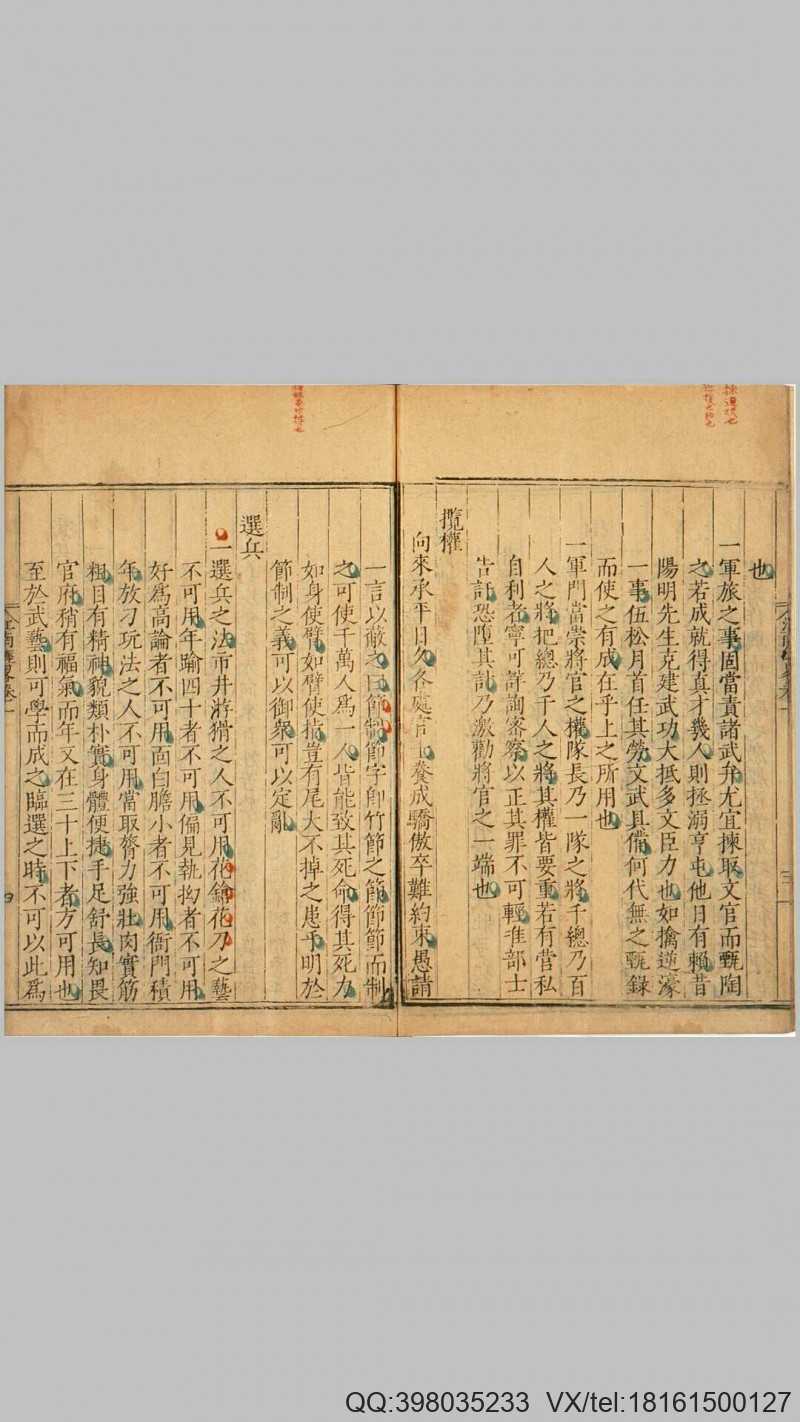 也
一軍旅之事固當責諸武弁尤宜揀取文官而甄陶
之若成就得真才幾人則拯溺亨屯他日有賴昔
陽明先生克建武功大抵多文臣力也如擒逆濠
一事伍松月首任其勞文武具備何代無之甄錄
而使之有成在乎上之所用也
一軍門當崇將官之權隊長乃一隊之將千總乃百
人之將把總乃千人之將其權皆要重若有營私
自利者寧可詳詢密察以正其罪不可輕准部士
告訐恐墮其計乃激勸將官之一端也
攬權
向來承平日久各處官士養成驕傲卒難約束愚請
一言以蔽之曰節制節字即竹節之節節節而制
之可使千萬人為一人皆能致其死命得其死力
如身使臂如臂使指豈有尾大不掉之患乎明於
節制之義可以御衆可以定亂
選兵
一選兵之法市井游猾之人不可用花鎗花刀之藝
不可用年踰四十者不可用偏見執拗者不可用
好為高論者不可用面白膽小者不可用衙門積
年放刁玩法之人不可用當取膂力強壯肉實筋
粗目有精神貌類朴實身體便捷手足舒長知畏
官府稍有福氣而年又在三十上下者方可用也
至於武藝則可學而成之臨選之時不可以此為
QQ:398035233 VX/tel:18161500127